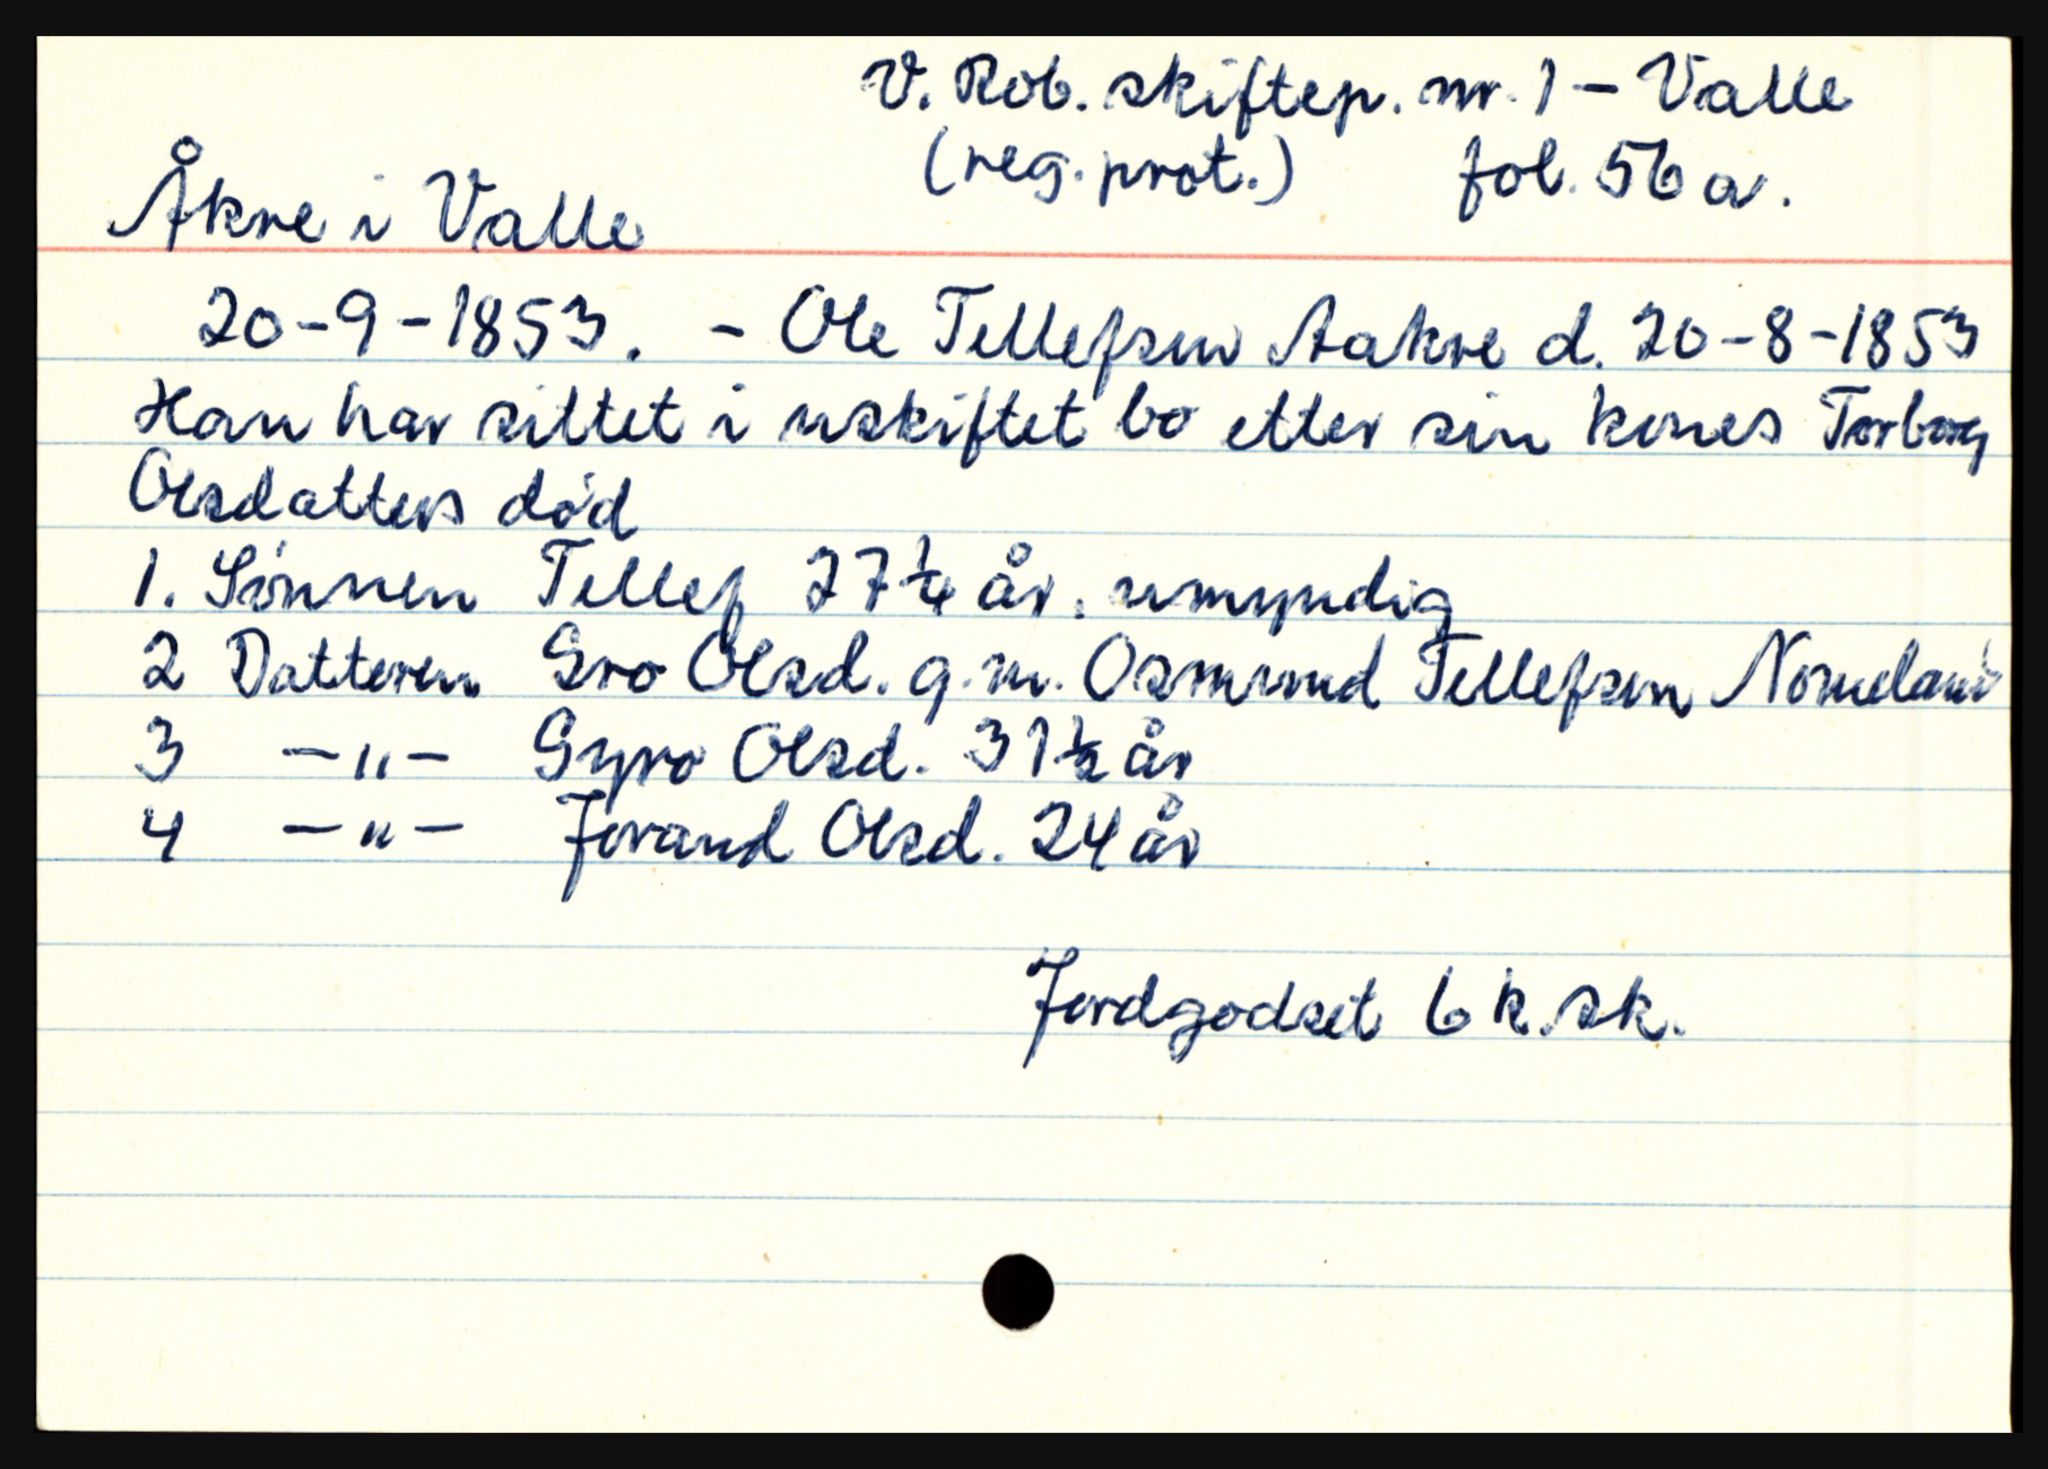 V. Rob. skiftep. nr. 1 - Valle
(reg. prot.) fol. 56 a.
Åkre i Valle
20-9-1853. - Ole Tellefsen Aakre d. 20-8-1853
Han har sittet i uskiftet bo etter sin kones Torborg
Olsdatters død
1. Sønnen Tellef 27 1/4 år. umyndig
2 Datteren Gro Olsd. g.m. Osmund Tellefsen Nomeland
3 -"- Gyro Olsd. 31 1/2 år
4 -"- Jorand Olsd. 24 år
Jordgodset 6 k.sk.